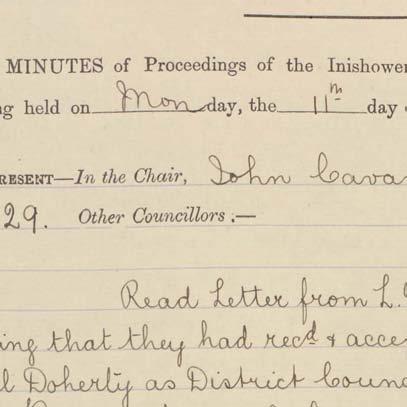 MINUTES of Proceedings of the Inishower
g held on Monday, the 11th day
RESENT—In the Chair, John Cava
29. Other Councillors :—
Read Letter from L.
ing that they had recd & acce
l Doherty as District Counc